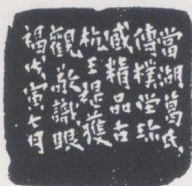 當湖葛氏
傳樸堂珎
臧精品古
杭王禔獲
觀敬識眼
福戊寅七月